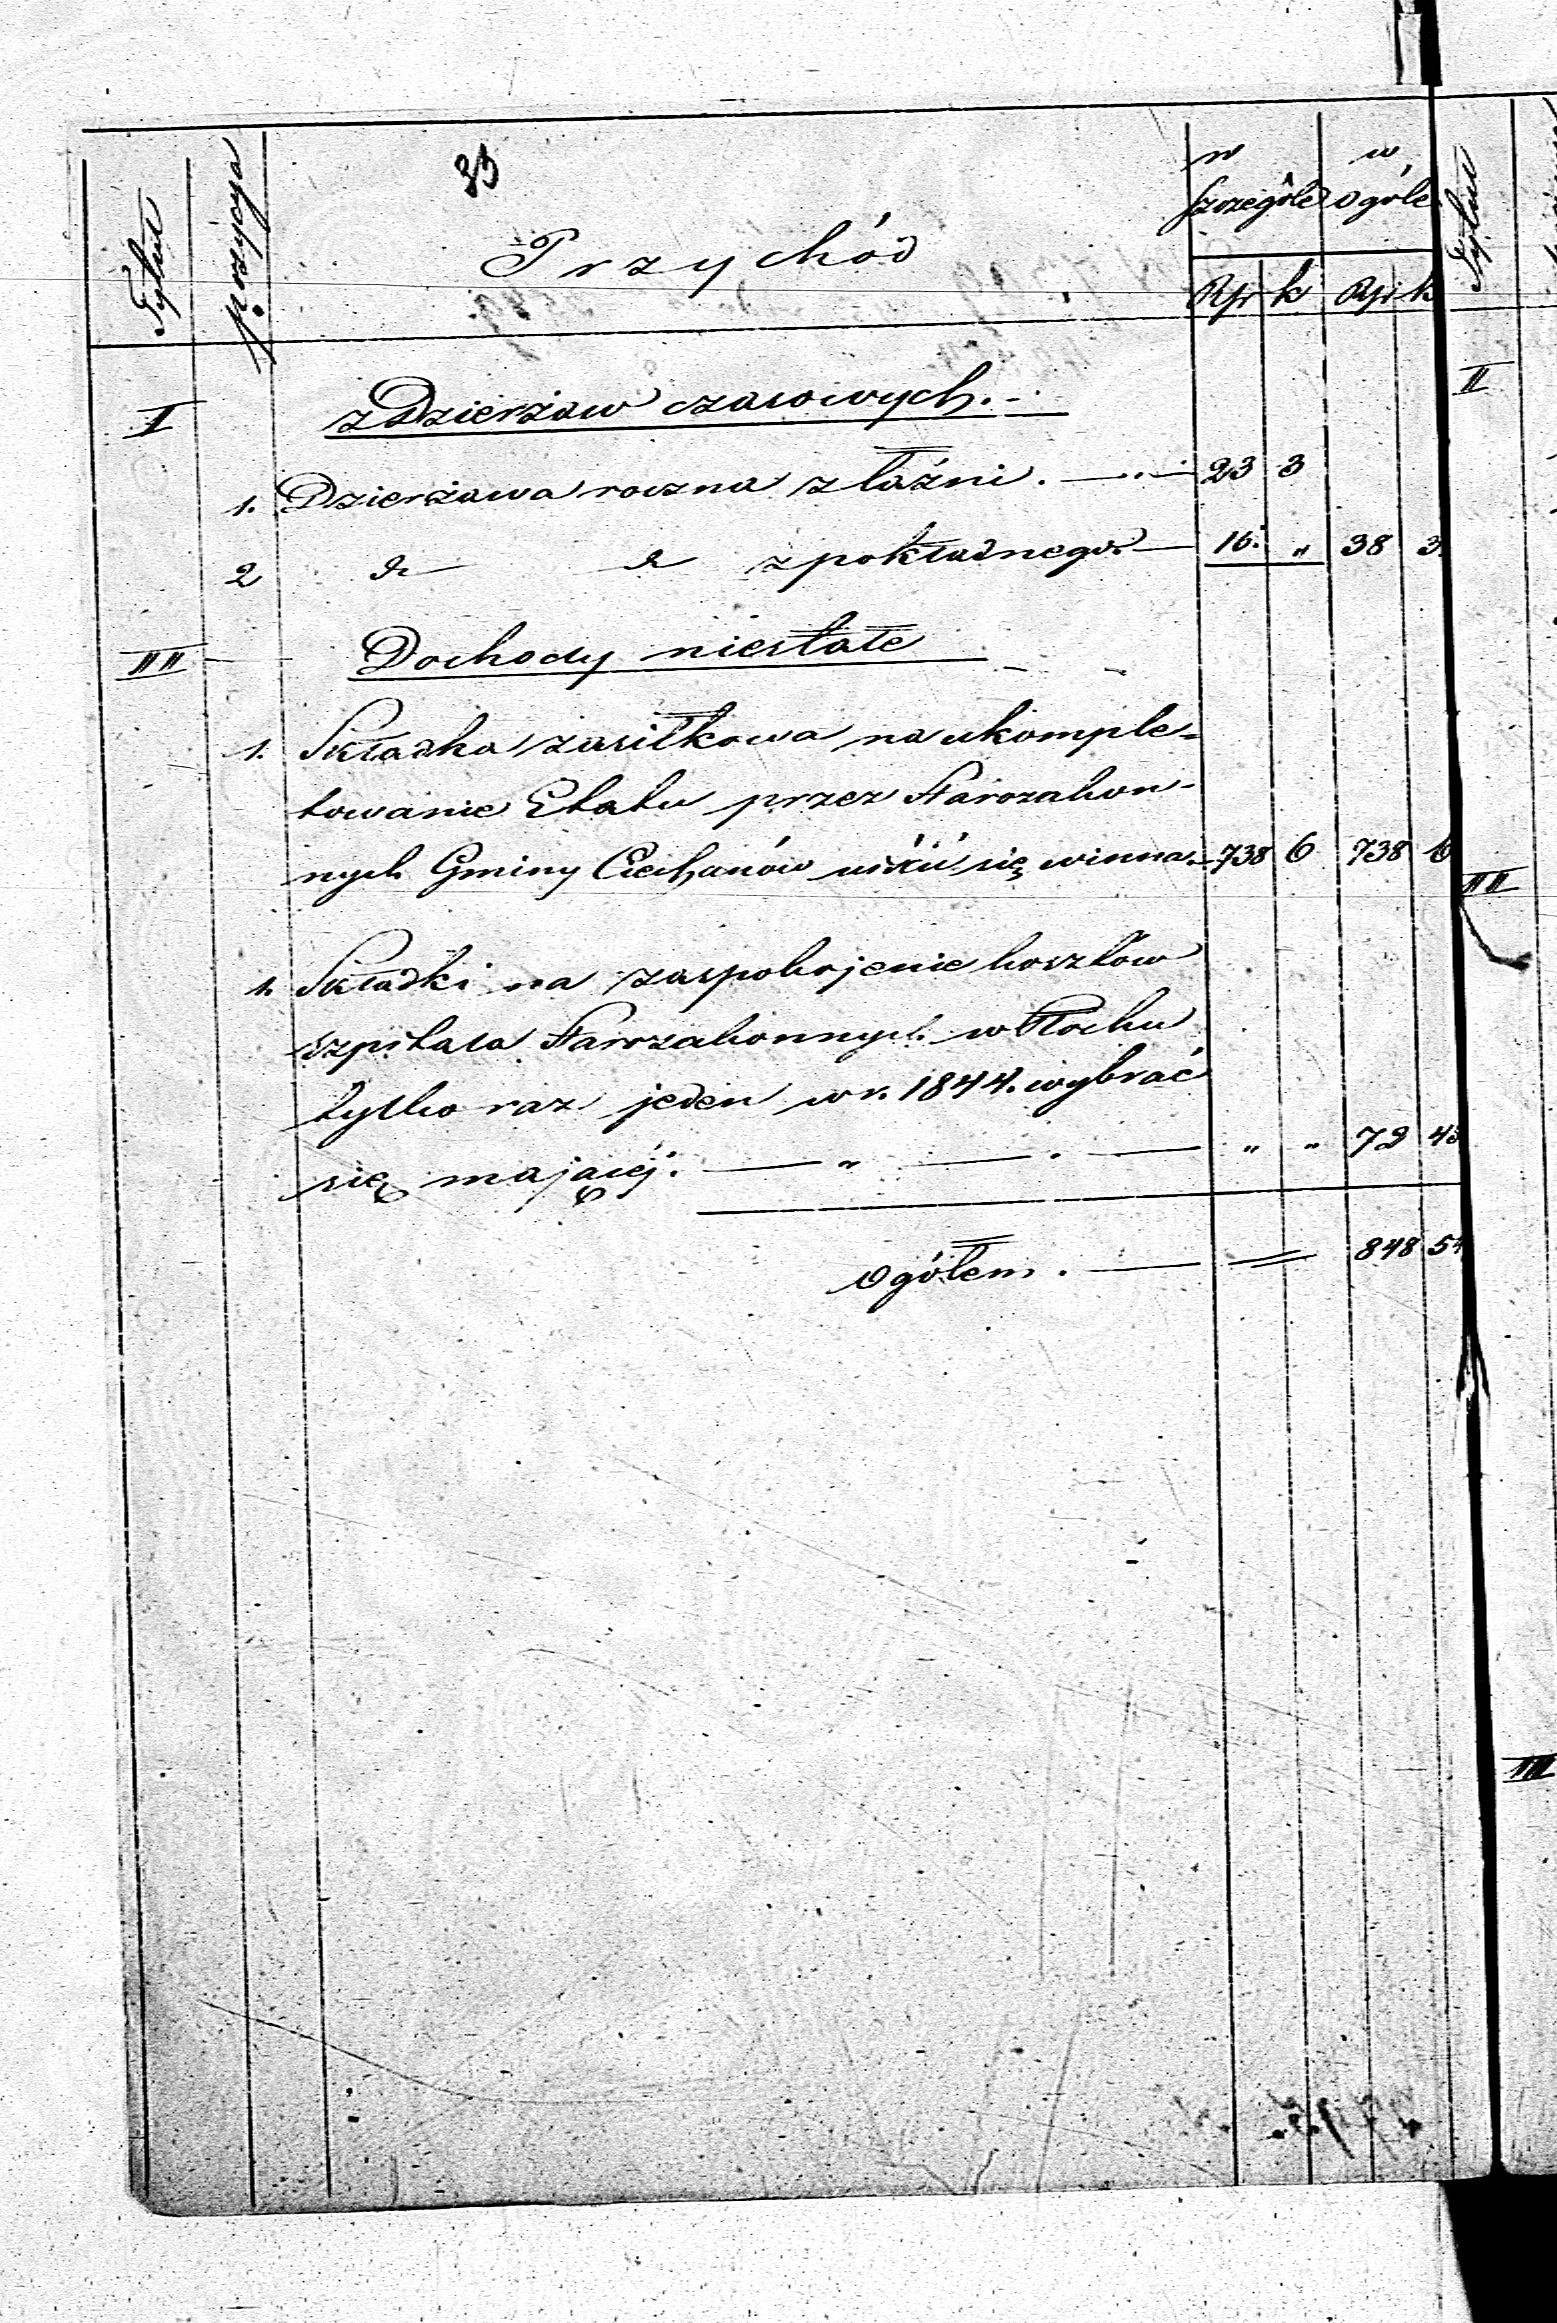 35
Tytuł
pozycya
Przychód
w szczególe
w ogóle
Rsr k
Rsr k
Tytuł
I
z Dzierżaw czasowych.
II
1. Dzierżawa roczna z łaźni. 23 3
2 dto dto z pokładnego 38 3
III
Dochody niestałe
1. Składka zasiłkowa na ukomple-
towanie Etatu przez Starozakon-
nych Gminy Ciechanów uiścić się winna 738 6 738 6
III
1. Składki na zaspokojenie kosztów
szpitala Starozakonnych w Płocku
tylko raz jeden w r. 1844. wybrać
się mającéj. " " 72 45
Ogółem. 848 54